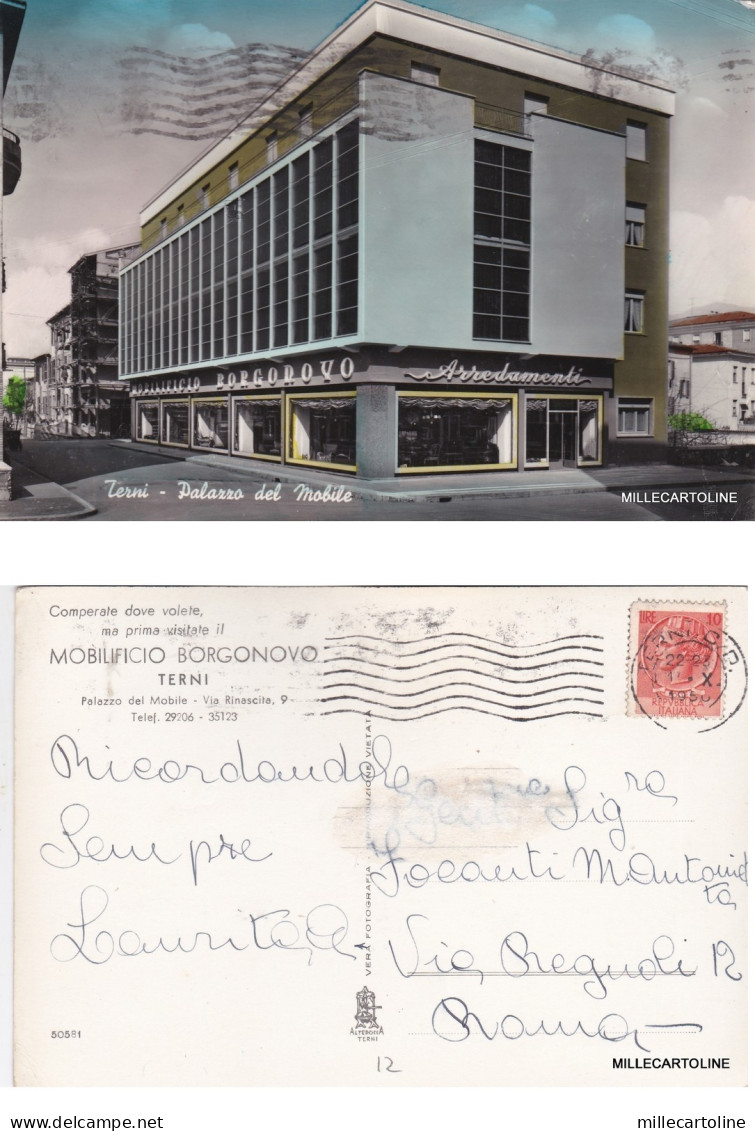 MOBILIFICIO BORGONOVO
Arredamenti
Terni - Palazzo del Mobile
MILLECARTOLINE
Comperate dove volete,
ma prima visitate il
MOBILIFICIO BORGONOVO
TERNI
Palazzo del Mobile - Via Rinascita, 9
Telef. 29206 - 35123
LIRE 10
REPVBBLICA
ITALIANA
TERNI
22-23
X
Ricordandola
Sempre
Laurita
VERA FOTOGRAFIA RIPRODUZIONE VIETATA
Gent Sig ra
Focanti M
Via 12
Roma
50581
ALTEROCCA
TERNI
12
MILLECARTOLINE
delcampe.net
millecartoline